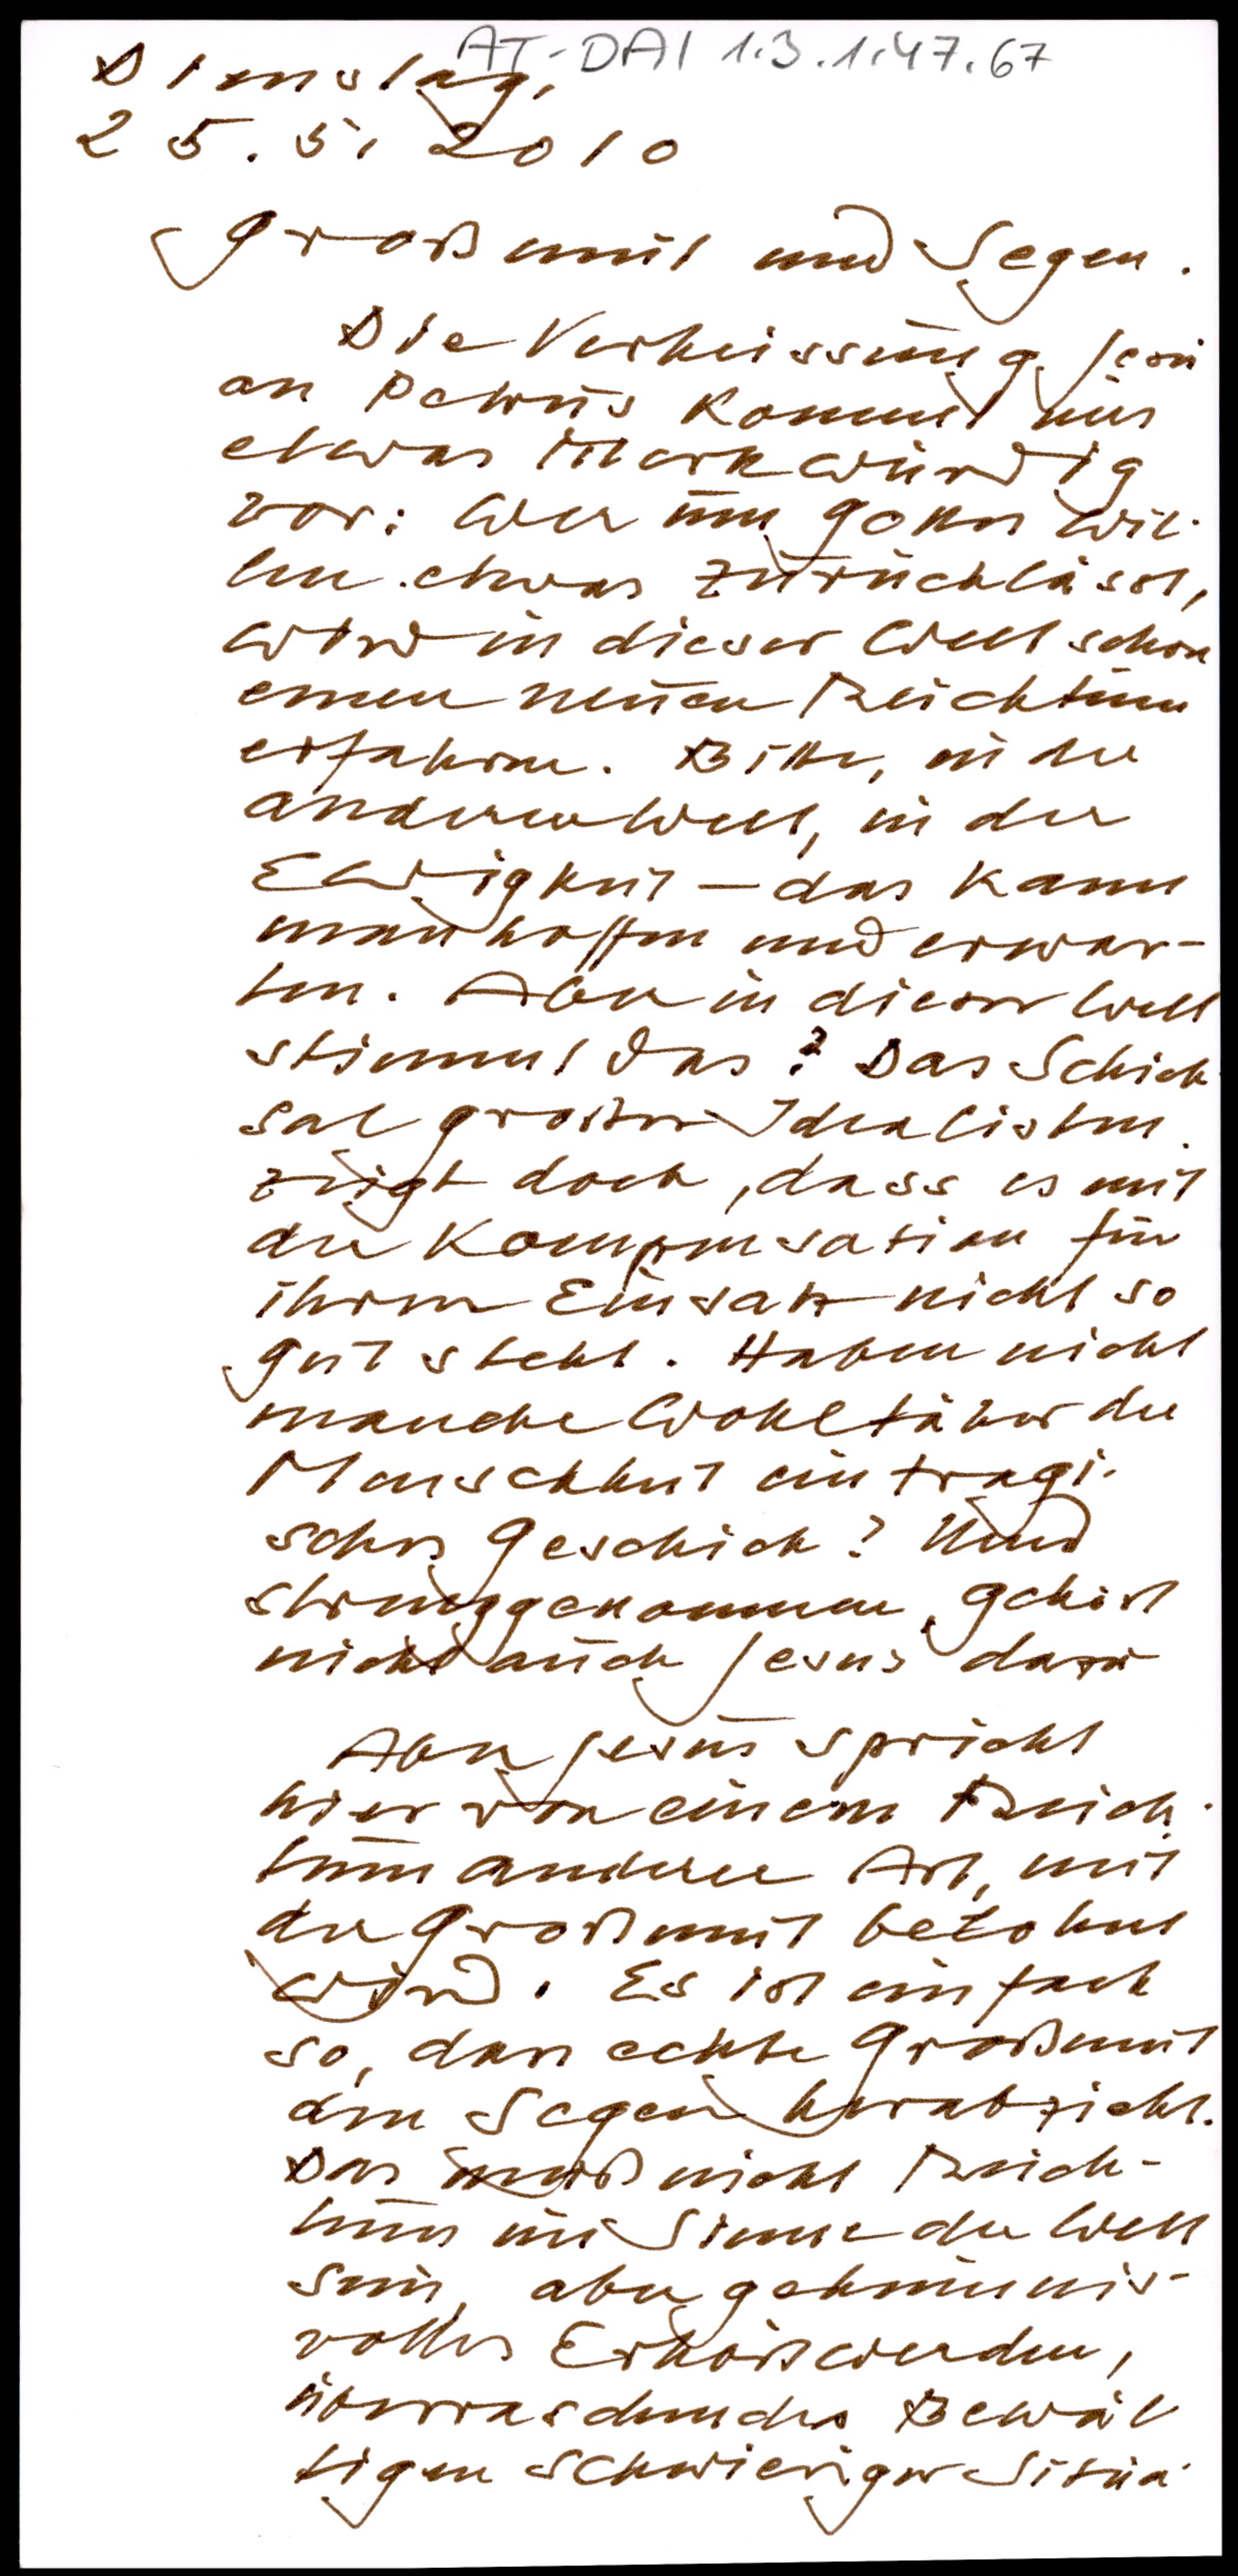 AT-DAI 1.3.1.47.67
Dienstag,
25.5.2010
Großmut und Segen.
Die Verheissung Jesu
an Petrus kommt mir
etwas merkwürdig
vor: Wer um Gottes Wil-
len etwas zurücklässt,
wird in dieser Welt schon
einen neuen Reichtum
erfahren. Bitte, in der
anderen Welt, in der
Ewigkeit – das kann
man hoffen und erwar-
ten. Aber in dieser Welt
stimmt das? Das Schick-
sal großer Idealisten
zeigt doch, dass es mit
der Kompensation für
ihren Einsatz nicht so
gut steht. Haben nicht
manche Wohltäter der
Menschheit ein tragi-
sches Geschick? Und
strenggenommen, gehört
nicht auch Jesus dazu
Aber Jesus spricht
hier von einem Reich-
tum anderer Art, mit
der Großmut belohnt
wird. Es ist einfach
so, dass echte Großmut
den Segen herabzieht.
Das muß nicht Reich-
tum im Sinne der Welt
sein, aber geheimnis-
volles Erhörtwerden,
überraschendes Bewäl
tigen schwieriger Situa-